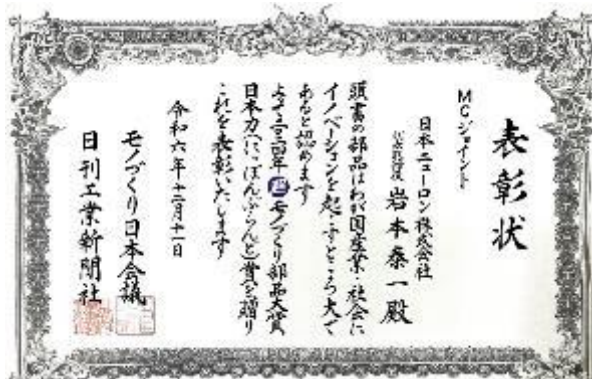 表彰状
MCジョイント
日本ニューロン株式会社
代表取締役 岩本泰一殿
頭書の部品はわが国産業・社会に
イノベーションを起こすところ大で
あると認めます
よって二〇二四年 モノづくり部品大賞
日本力(にっぽんぶらんど)賞を贈り
これを表彰いたします
令和六年十二月十一日
モノづくり日本会議
日刊工業新聞社